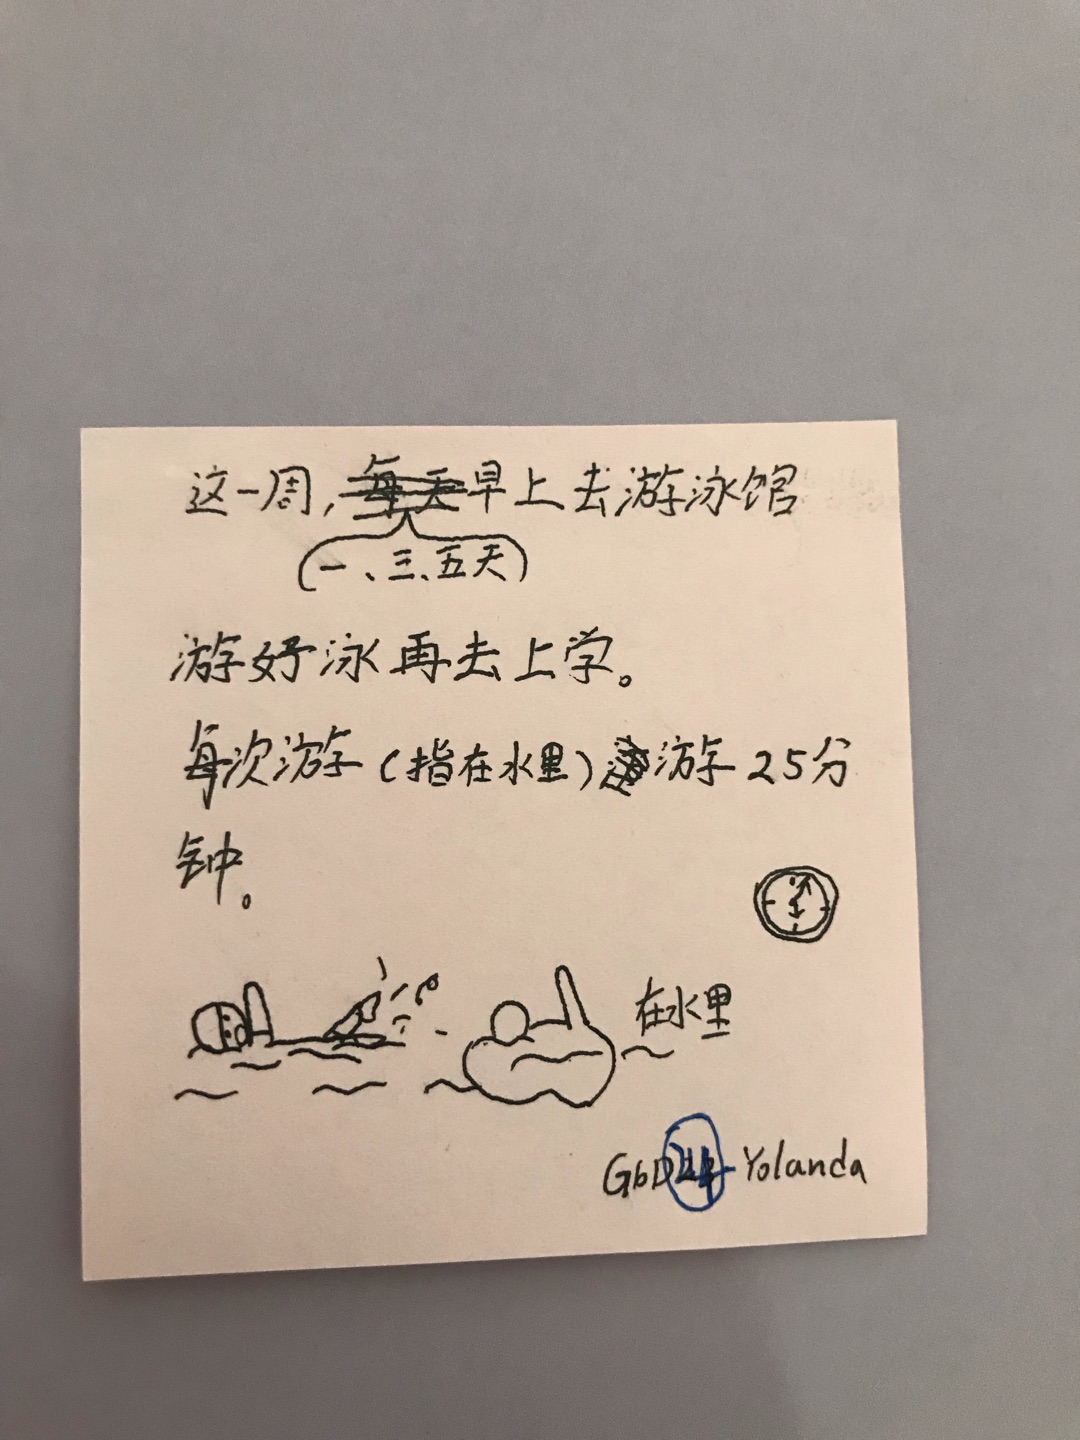 这一周，每天早上去游泳馆
（一、三、五天）
游好泳再去上学。
每次游（指在水里）游25分
钟。
在水里
G6D24 Yolanda